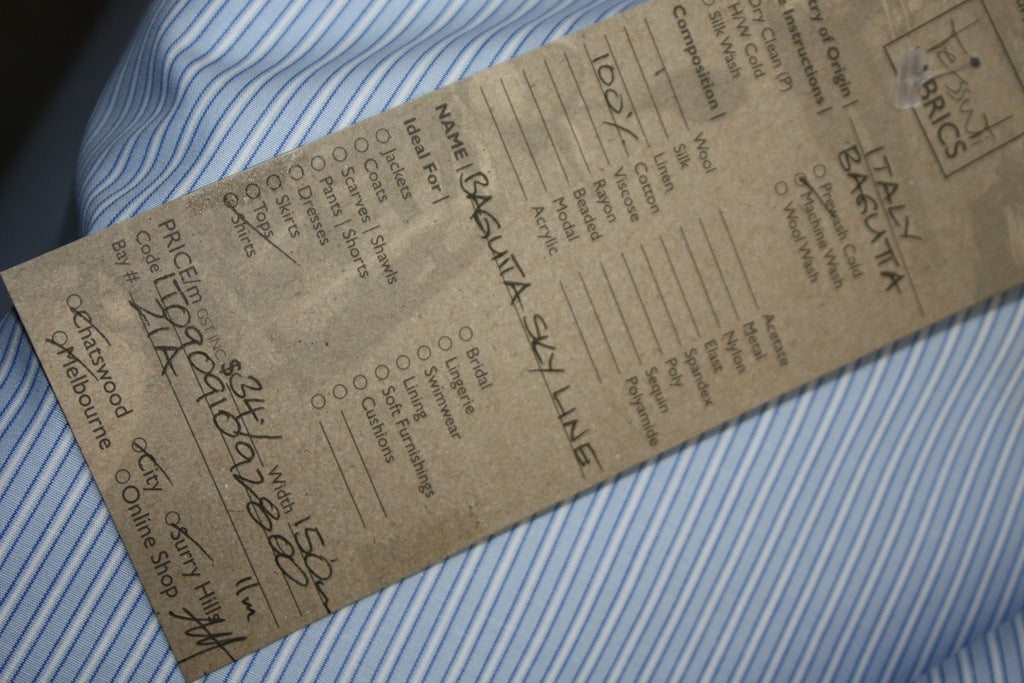 Tessuti
FABRICS
Country of Origin | ITALY
BAGUTTA
Care Instructions |
Dry Clean (P)
Prewash Cold
H/W Cold
Machine Wash
Silk Wash
Wool Wash
Composition |
Wool
Acetate
Silk
Metal
Linen
Nylon
100% Cotton
Elast
Viscose
Spandex
Rayon
Poly
Beaded
Sequin
Modal
Polyamide
Acrylic
NAME | BAGUTTA SKY LINE
Ideal For |
Jackets
Bridal
Coats
Lingerie
Scarves | Shawls
Swimwear
Pants | Shorts
Lining
Dresses
Soft Furnishings
Skirts
Cushions
Tops
Shirts
PRICE/m GST INC $34
Width 150cm
Code
Bay # 21A
11m
Chatswood
City
Surry Hills
Melbourne
Online Shop